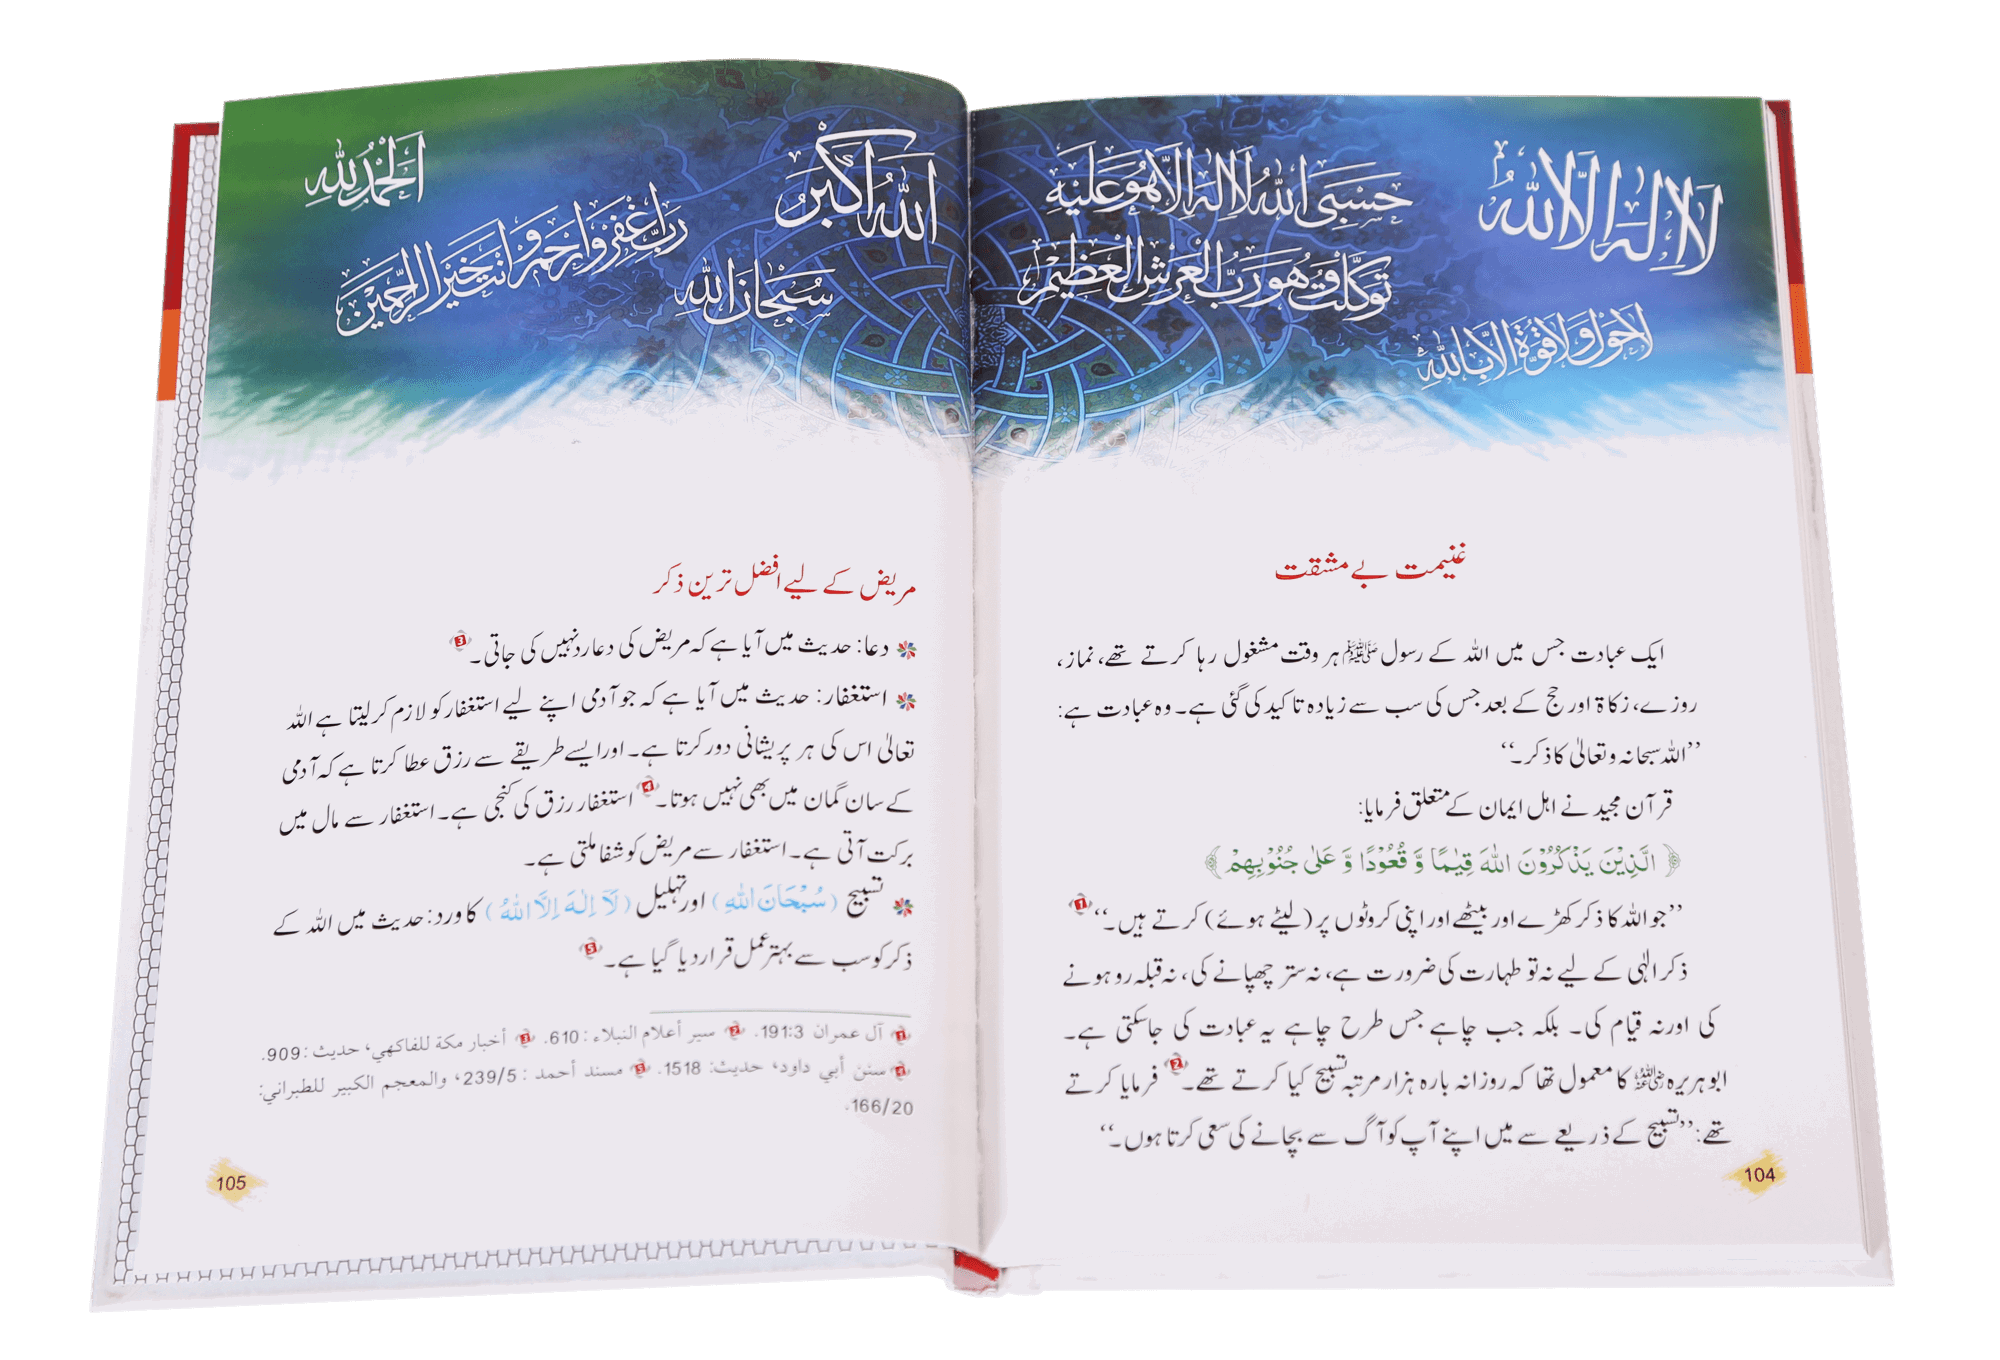 لا اله الا الله
حَسْبِيَ اللهُ لَا اِلٰهَ اِلَّا هُوَ عَلَيْهِ
تَوَكَّلْتُ وَهُوَ رَبُّ الْعَرْشِ الْعَظِيْمِ
لا حول ولا قوة الا بالله
غنیمت بے مشقت
ایک عبادت جس میں اللہ کے رسول ﷺ ہر وقت مشغول رہا کرتے تھے، نماز،
روزے، زکاۃ اور حج کے بعد جس کی سب سے زیادہ تاکید کی گئی ہے۔ وہ عبادت ہے:
’’اللہ سبحانہ وتعالیٰ کا ذکر۔‘‘
قرآن مجید نے اہل ایمان کے متعلق فرمایا:
﴿ الَّذِيْنَ يَذْكُرُوْنَ اللّٰهَ قِيٰمًا وَّ قُعُوْدًا وَّ عَلٰى جُنُوْبِهِمْ ﴾
’’جو اللہ کا ذکر کھڑے اور بیٹھے اور اپنی کروٹوں پر (لیٹے ہوئے) کرتے ہیں۔‘‘ 1
ذکر الٰہی کے لیے نہ تو طہارت کی ضرورت ہے، نہ ستر چھپانے کی، نہ قبلہ رو ہونے
کی اور نہ قیام کی۔ بلکہ جب چاہے جس طرح چاہے یہ عبادت کی جاسکتی ہے۔
ابو ہریرہ رضی اللہ عنہ کا معمول تھا کہ روزانہ بارہ ہزار مرتبہ تسبیح کیا کرتے تھے۔ 2 فرمایا کرتے
تھے: ’’تسبیح کے ذریعے سے میں اپنے آپ کو آگ سے بچانے کی سعی کرتا ہوں۔‘‘
104
الله اكبر
الحمد لله
رب اغفر وارحم وانت خير الرحمين
سبحان الله
مریض کے لیے افضل ترین ذکر
دعا: حدیث میں آیا ہے کہ مریض کی دعا رد نہیں کی جاتی۔ 3
استغفار: حدیث میں آیا ہے کہ جو آدمی اپنے لیے استغفار کو لازم کر لیتا ہے اللہ
تعالیٰ اس کی ہر پریشانی دور کرتا ہے۔ اور ایسے طریقے سے رزق عطا کرتا ہے کہ آدمی
کے سان گمان میں بھی نہیں ہوتا۔ 4 استغفار رزق کی کنجی ہے۔ استغفار سے مال میں
برکت آتی ہے۔ استغفار سے مریض کو شفا ملتی ہے۔
تسبیح (سُبْحَانَ اللّٰهِ) اور تہلیل (لَآ اِلٰهَ اِلَّا اللّٰهُ) کا ورد: حدیث میں اللہ کے
ذکر کو سب سے بہتر عمل قرار دیا گیا ہے۔ 5
1 آل عمران 191:3. 2 سير أعلام النبلاء : 610. 3 أخبار مكة للفاكهي، حديث : 909.
4 سنن أبي داود، حديث: 1518. 5 مسند أحمد : 239/5، والمعجم الكبير للطبراني:
166/20.
105